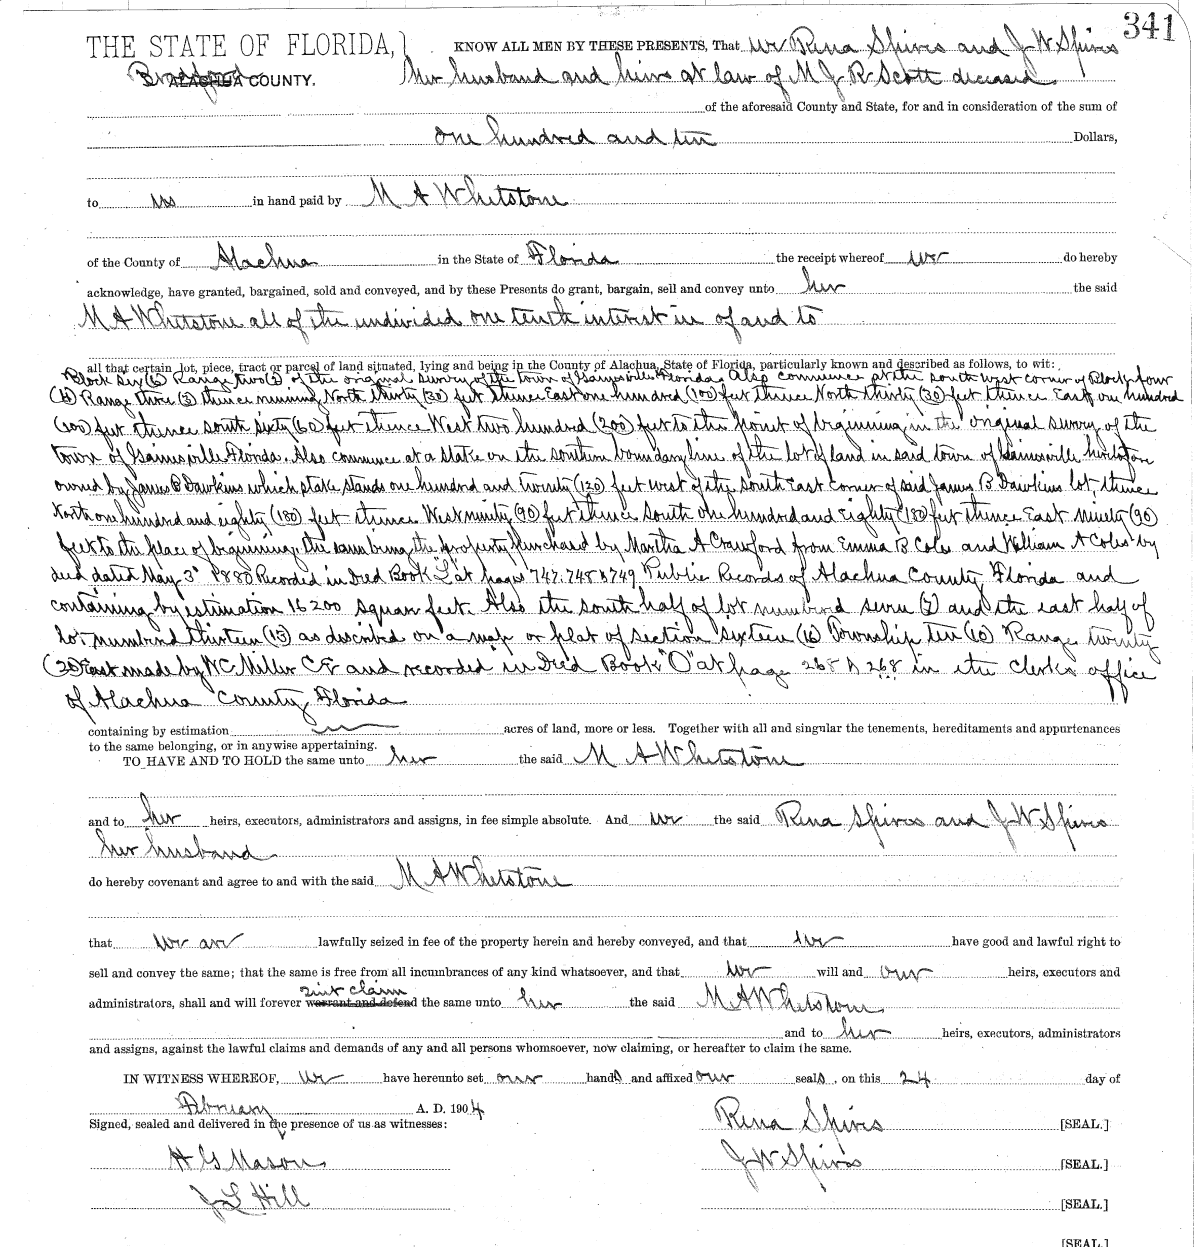 341
THE STATE OF FLORIDA,} KNOW ALL MEN BY THESE PRESENTS, That we Rena Spires and J W Spires
Bradford ALACHUA COUNTY. her husband and heirs at law of M J R Scott deceased
of the aforesaid County and State, for and in consideration of the sum of
One hundred and ten Dollars,
to us in hand paid by M A Whetstone
of the County of Alachua in the State of Florida the receipt whereof we do hereby
acknowledge, have granted, bargained, sold and conveyed, and by these Presents do grant, bargain, sell and convey unto her the said
M A Whetstone all of the undivided one tenth interest in of and to
all that certain lot, piece, tract or parcel of land situated, lying and being in the County of Alachua, State of Florida, particularly known and described as follows, to wit:
Block Six (6) Range two (2) of the original survey of the town of Gainesville Florida. Also commence at the south west corner of Block four
Range three (3) thence running North thirty (30) feet thence East one hundred (100) feet thence North thirty (30) feet thence East one hundred
(100) feet thence South Sixty (60) feet thence West two hundred (200) feet to the point of beginning in the original survey of the
town of Gainesville Florida. Also commence at a stake on the southern boundary line of the lot of land in said town of Gainesville
owned by James B Dawkins which stake stands one hundred and twenty (120) feet west of the South East corner of said James B Dawkins lot, thence
North one hundred and eighty (180) feet thence West ninety (90) feet thence South one hundred and Eighty (180) feet thence East ninety (90)
feet to the place of beginning, the same being the property purchased by Martha A Crawford from Emma B Coles and William A Coles by
deed dated May 3" 1880 Recorded in Deed Book "L" at pages 747.748 & 749 Public Records of Alachua County Florida and
containing by estimation 16200 square feet. Also the south half of lot numbered seven (7) and the east half of
lot numbered thirteen (13) as described on a map or plat of section sixteen (16) Township ten (10) Range twenty
(20) East made by N C Miller C E and recorded in Deed Book "O" at page 268 & 268 in the clerks office
of Alachua County, Florida
containing by estimation acres of land, more or less. Together with all and singular the tenements, hereditaments and appurtenances
to the same belonging, or in anywise appertaining.
TO HAVE AND TO HOLD the same unto her the said M A Whetstone
and to her heirs, executors, administrators and assigns, in fee simple absolute. And we the said Rena Spires and J W Spires
her husband
do hereby covenant and agree to and with the said M A Whetstone
that we are lawfully seized in fee of the property herein and hereby conveyed, and that we have good and lawful right to
sell and convey the same; that the same is free from all incumbrances of any kind whatsoever, and that we will and our heirs, executors and
quit claim
administrators, shall and will forever warrant and defend the same unto her the said M A Whetstone
and to her heirs, executors, administrators
and assigns, against the lawful claims and demands of any and all persons whomsoever, now claiming, or hereafter to claim the same.
IN WITNESS WHEREOF, we have hereunto set our hands and affixed our seals, on this 24 day of
February A. D. 1904
Signed, sealed and delivered in the presence of us as witnesses: Rena Spires [SEAL.]
H G Mason J W Spires [SEAL.]
J L Hill [SEAL.]
[SEAL.]